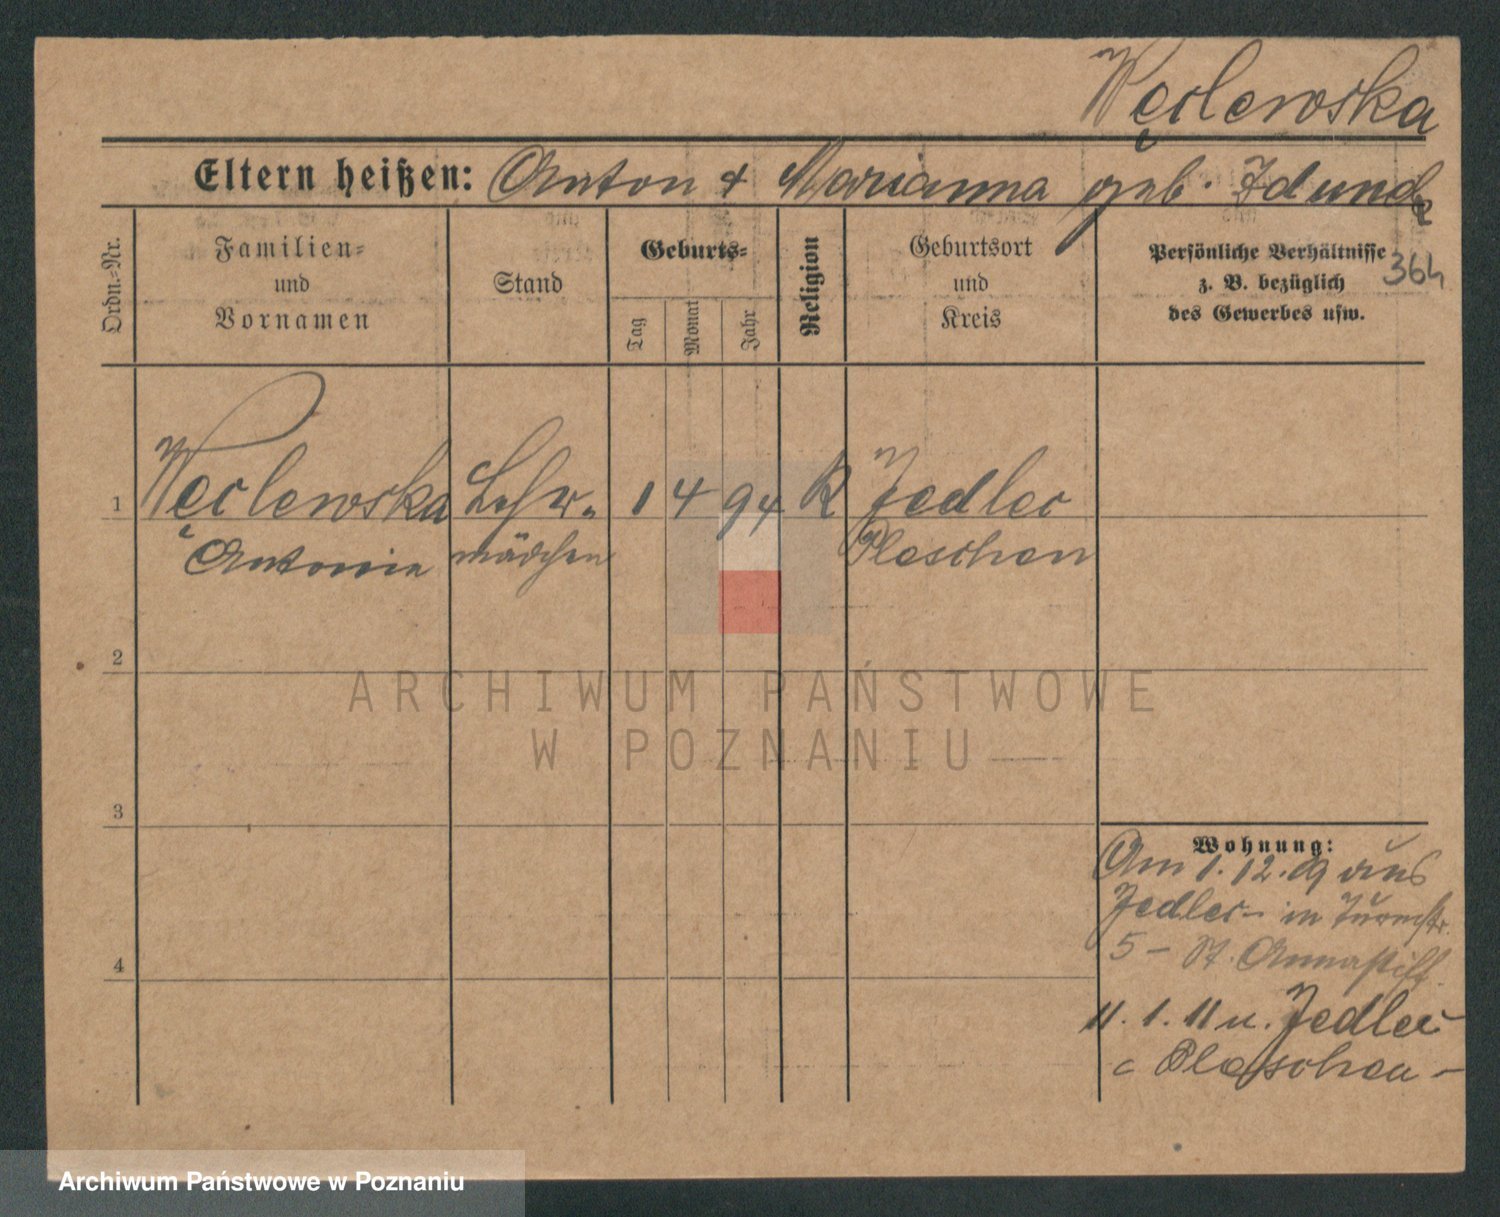 Węclewska
Eltern heißen: Anton & Marianna geb. Idund
364
Ordn.-Nr.
Familien-
und
Vornamen
Stand
Geburts-
Tag
Monat
Jahr
Religion
Geburtsort
und
Kreis
Persönliche Verhältnisse
z. B. bezüglich
des Gewerbes usw.
1 Węclewska Lehr- 1 4 94 R Jedlec
Antonia mädchen Pleschen
2
3
4
Wohnung:
Am 1.12.09 aus
Jedlec - in Turmstr.
5 - St. Annastift
11. 1. 11 n. Jedlec
Pleschen -
ARCHIWUM PAŃSTWOWE
W POZNANIU
Archiwum Państwowe w Poznaniu